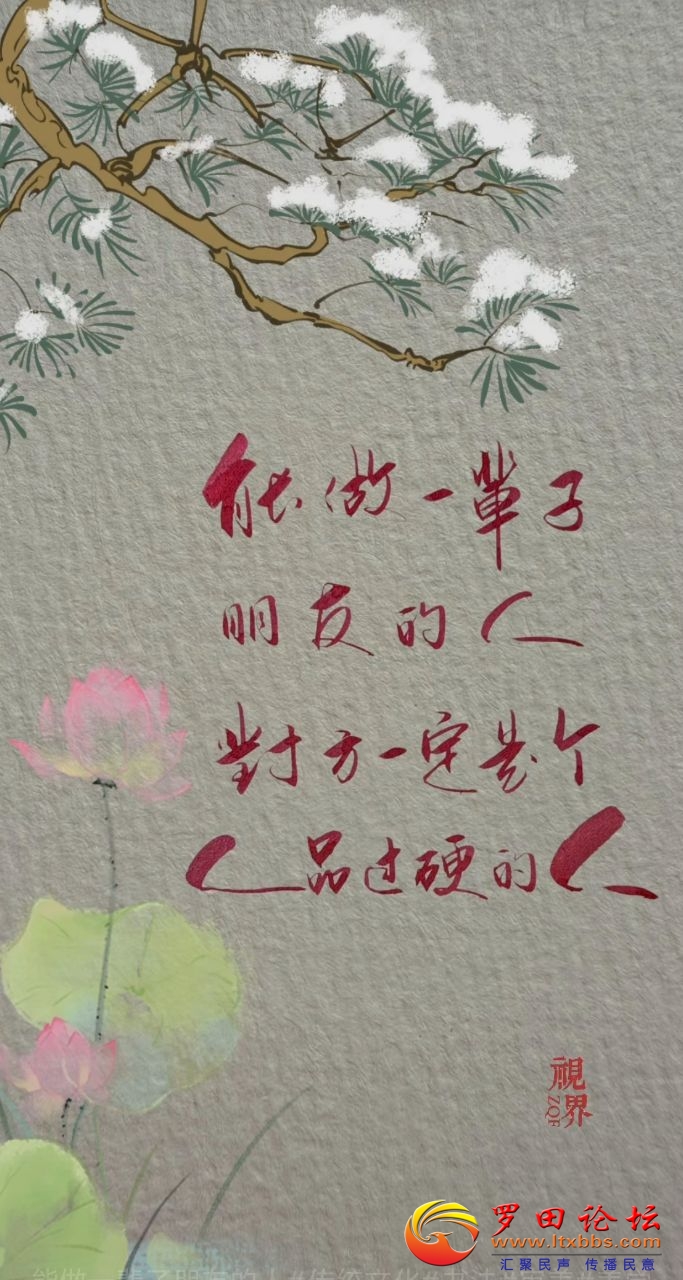 能做一輩子
朋友的人
對方一定是个
人品过硬的人
視界
ZQF
罗田论坛
www.ltxbbs.com
汇聚民声 传播民意